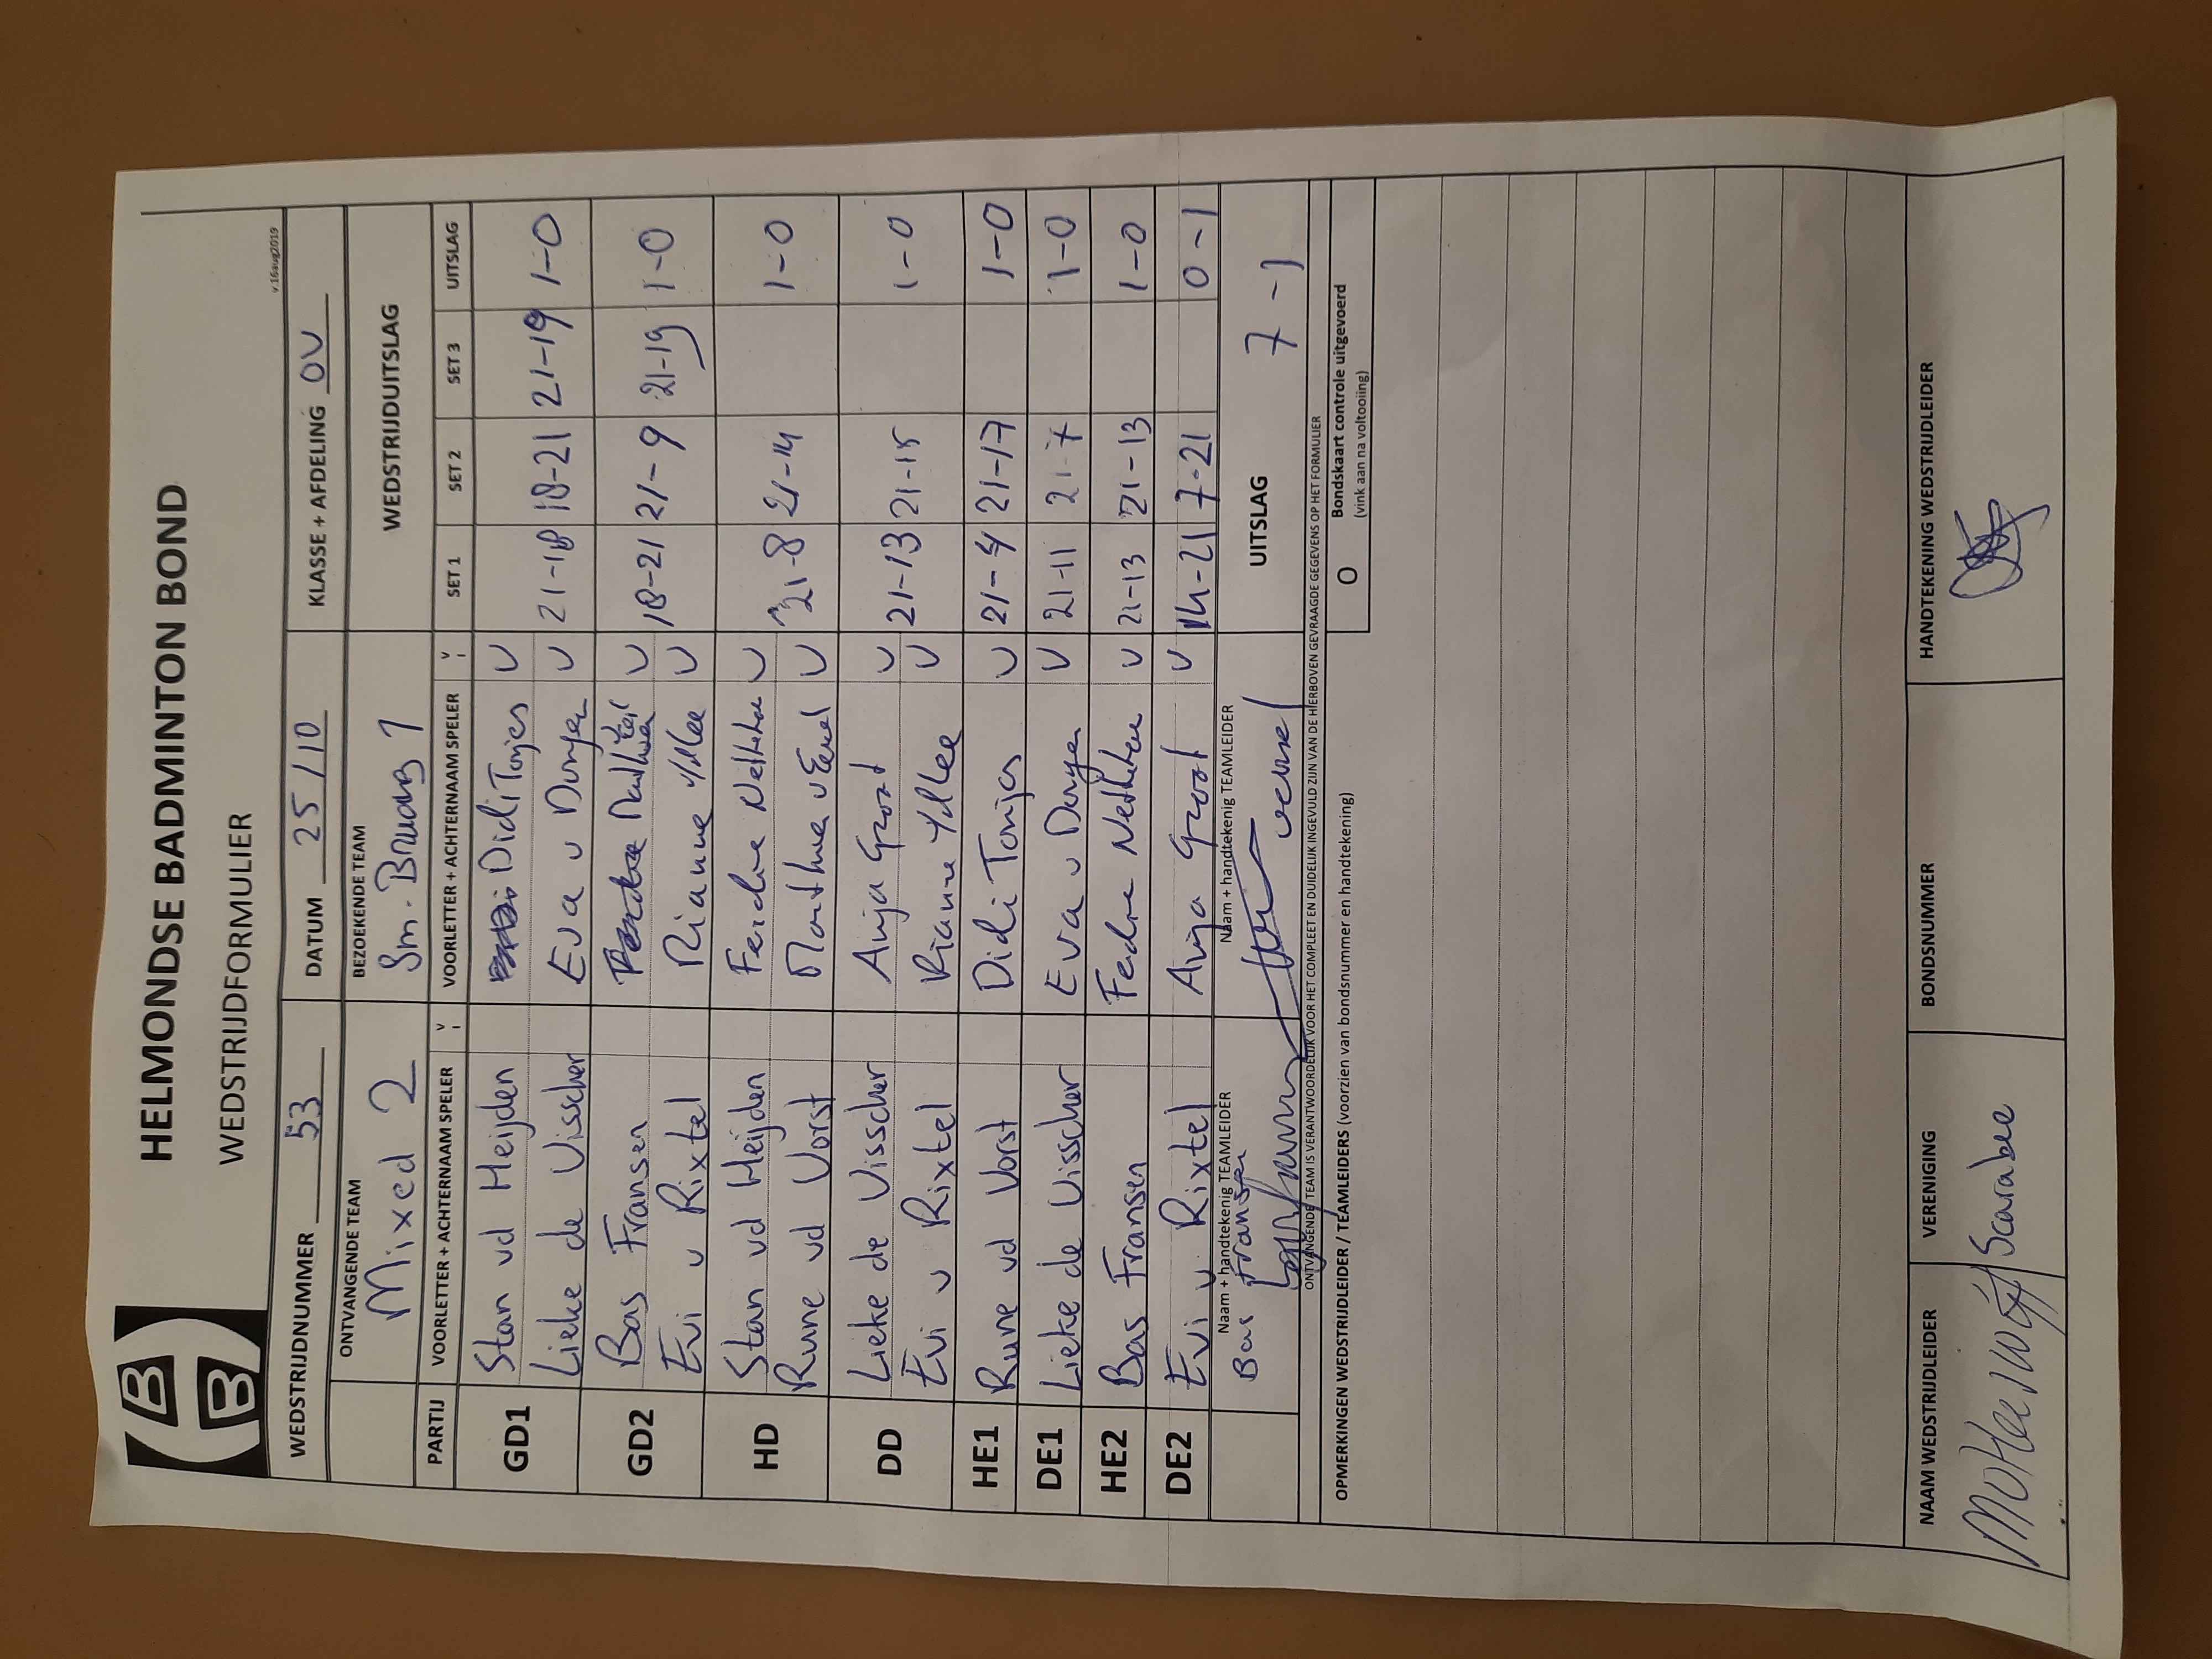 HELMONDSE BADMINTON BOND
WEDSTRIJDFORMULIER
v.16aug2019
WEDSTRIJDNUMMER 53 DATUM 25/10 KLASSE + AFDELING OV
ONTVANGENDE TEAM BEZOEKENDE TEAM WEDSTRIJDUITSLAG
Mixed 2 1
PARTIJ VOORLETTER + ACHTERNAAM SPELER V VOORLETTER + ACHTERNAAM SPELER V SET 1 SET 2 SET 3 UITSLAG
GD1 Stan vd Heijden Didi Tonjes V
Lieke de Visscher Eva v Dongen V 21-18 18-21 21-19 1-0
GD2 Bas Fransen V
Evi v Rixtel Rianne V 18-21 21-9 21-19 1-0
HD Stan vd Heijden V
Rune vd Vorst V 21-8 21-14 1-0
DD Lieke de Visscher Anja Groot V
Evi v Rixtel Rianne V 21-13 21-15 1-0
HE1 Rune vd Vorst Didi Tonjes V 21-4 21-17 1-0
DE1 Lieke de Visscher Eva v Dongen V 21-11 21-7 1-0
HE2 Bas Fransen V 21-13 21-13 1-0
DE2 Evi v Rixtel Anja Groot V 14-21 7-21 0-1
Naam + handtekenig TEAMLEIDER Naam + handtekenig TEAMLEIDER UITSLAG 7-1
Bas Fransen
ONTVANGENDE TEAM IS VERANTWOORDELIJK VOOR HET COMPLEET EN DUIDELIJK INGEVULD ZIJN VAN DE HIERBOVEN GEVRAAGDE GEGEVENS OP HET FORMULIER
OPMERKINGEN WEDSTRIJDLEIDER / TEAMLEIDERS (voorzien van bondsnummer en handtekening) O Bondskaart controle uitgevoerd
(vink aan na voltooiing)
NAAM WEDSTRIJDLEIDER VERENIGING BONDSNUMMER HANDTEKENING WEDSTRIJDLEIDER
Scarabee